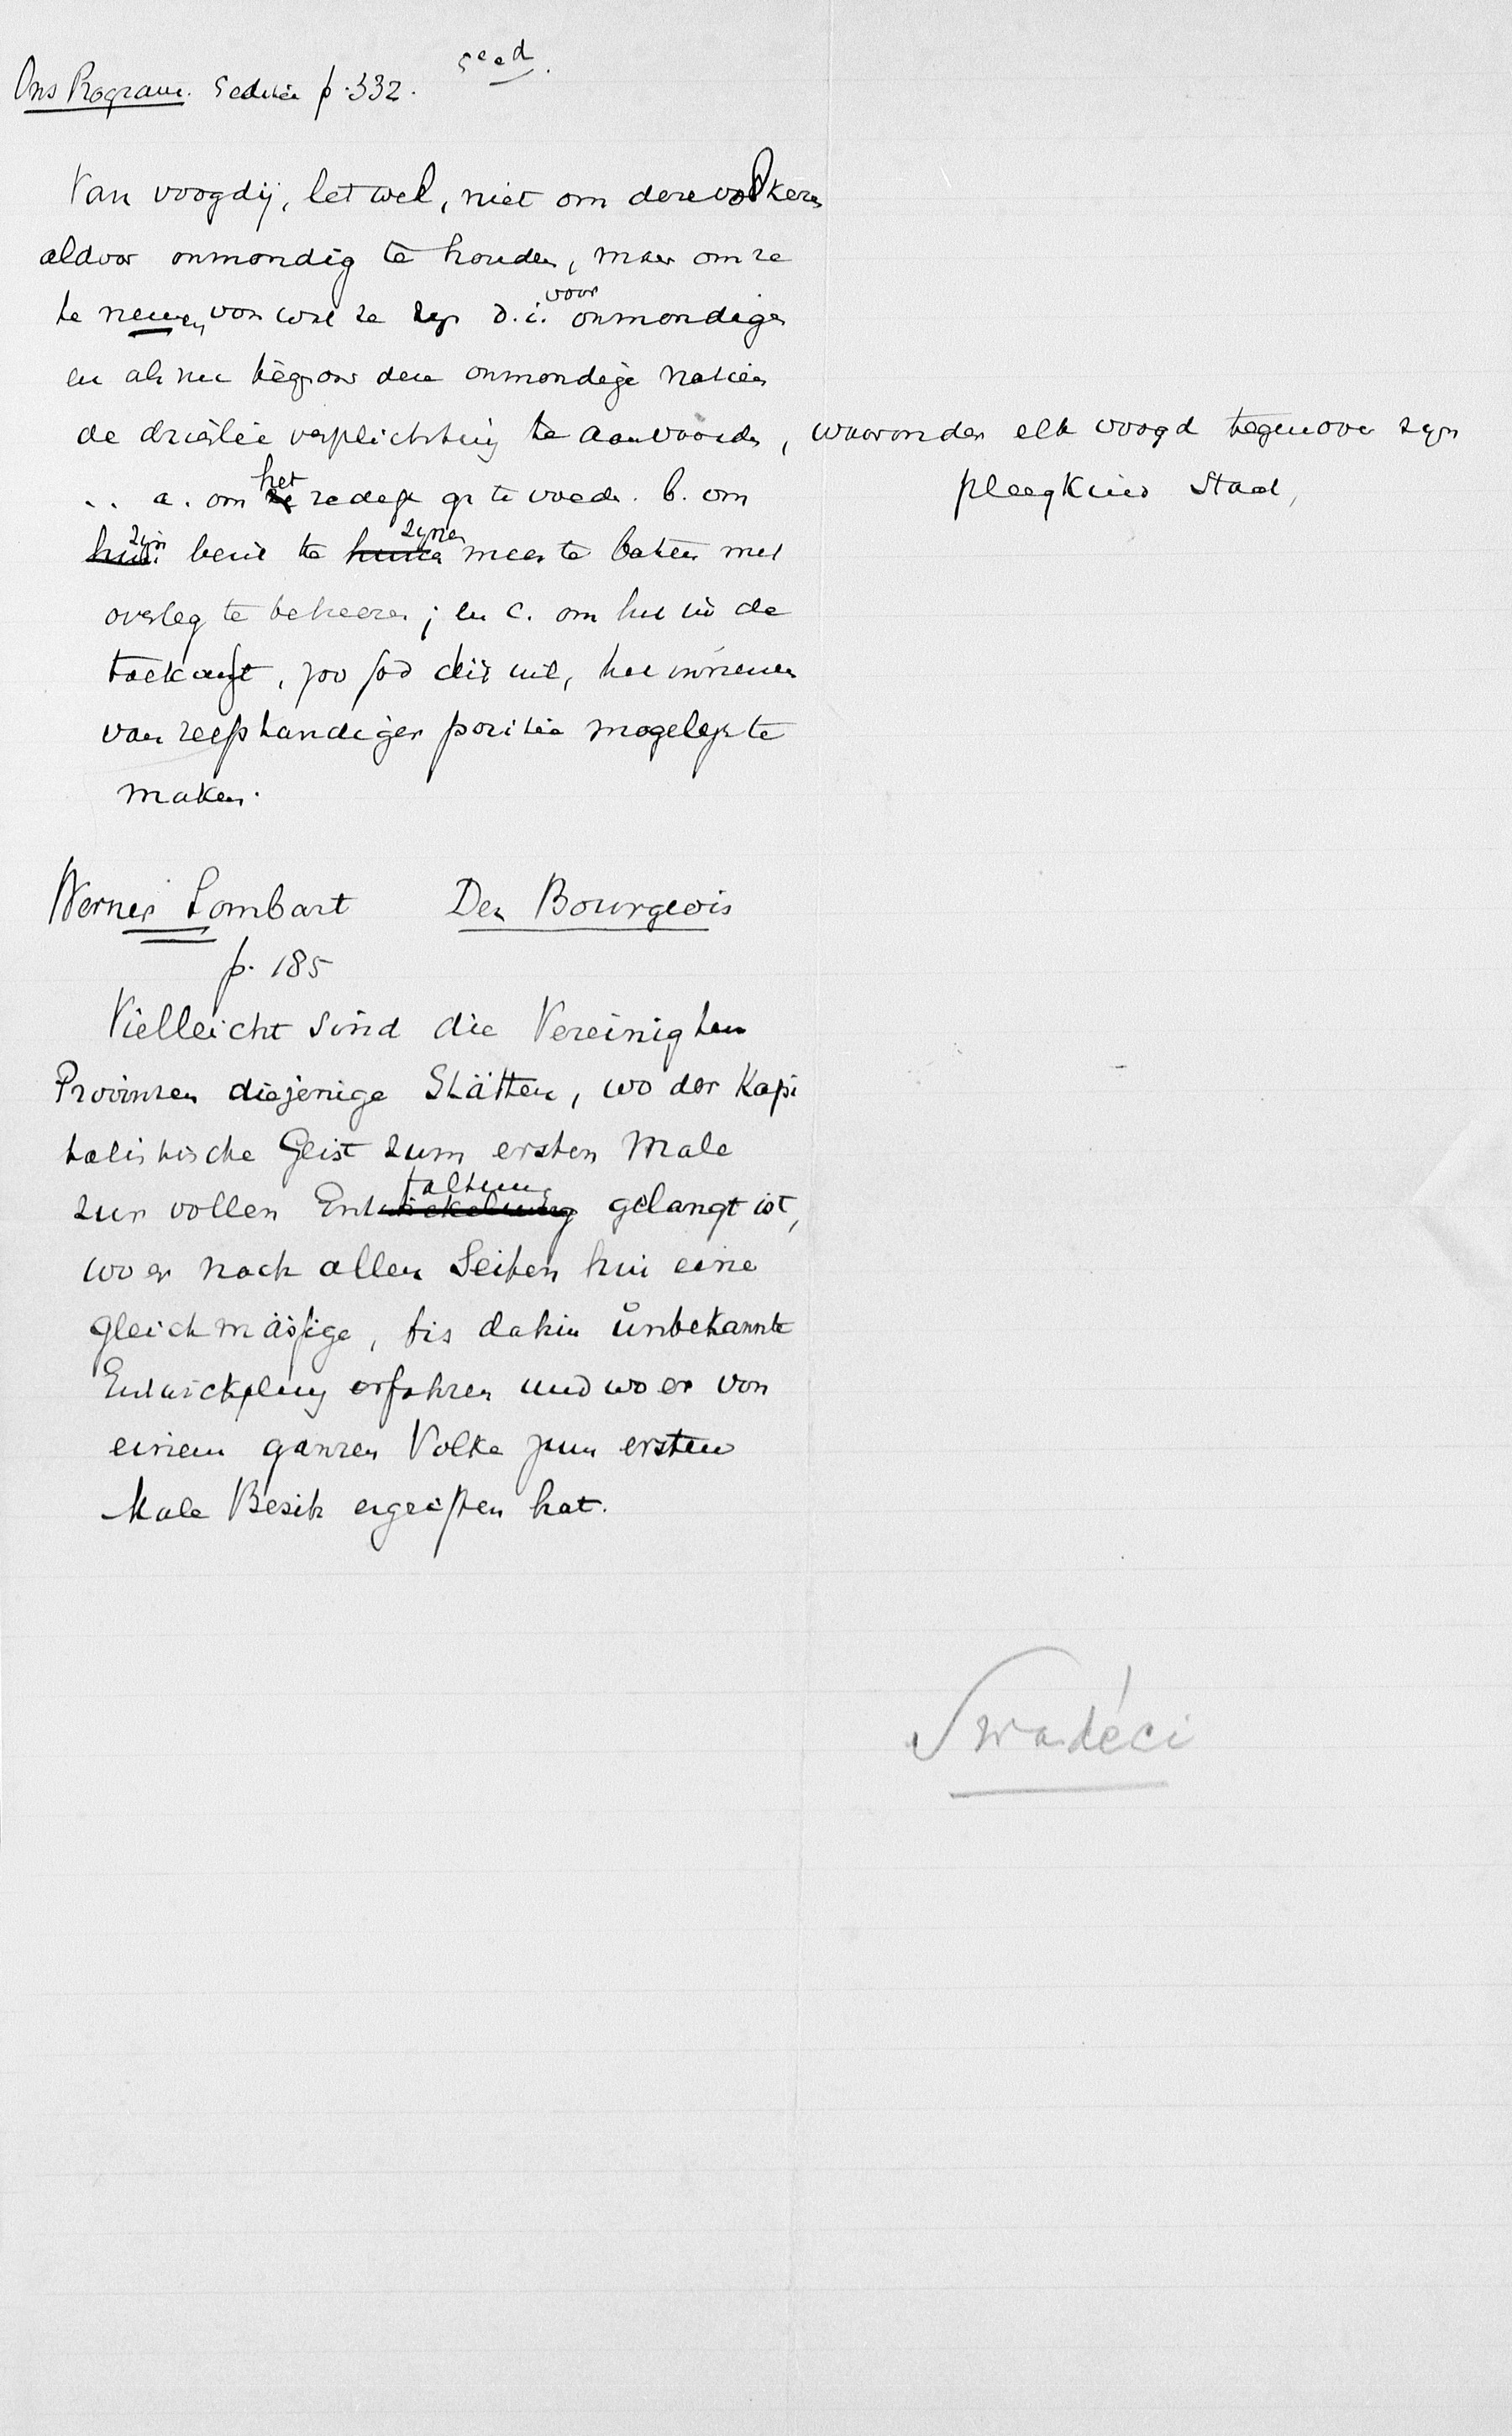 5e ed.
Ons Program. 5e editie p. 332.
Van voogdij, let wel, niet om deze volken
aldoor onmondig te houden, maar om ze
te nemen voor wat ze zijn d.i. voor onmondigen
en als nu tegenover deze onmondige natiën
de drieërlei verplichting te aanvaarden, waaronder elk voogd tegenover zijn
pleegkind staat,
.. a. om het zedelijk op te voeden. b. om
zijn bezit te zijnen meeste bate met
overleg te beheeren; en c. om het in de
toekomst, zoo God dit wil, het innemen
van zelfstandiger positie mogelijk te
maken.
Werner Sombart Der Bourgeois
p. 185
Vielleicht sind die Vereinigten
Provinzen diejenige Stätten, wo der Kapi
talistische Geist zum ersten Male
zur vollen Entfaltung gelangt ist,
wo er nach allen Seiten hin eine
gleichmässige, bis dahin unbekannte
Entwickelung erfahren und wo er von
einem ganzen Volke zum ersten
Male Besitz ergriffen hat.
Swadéci